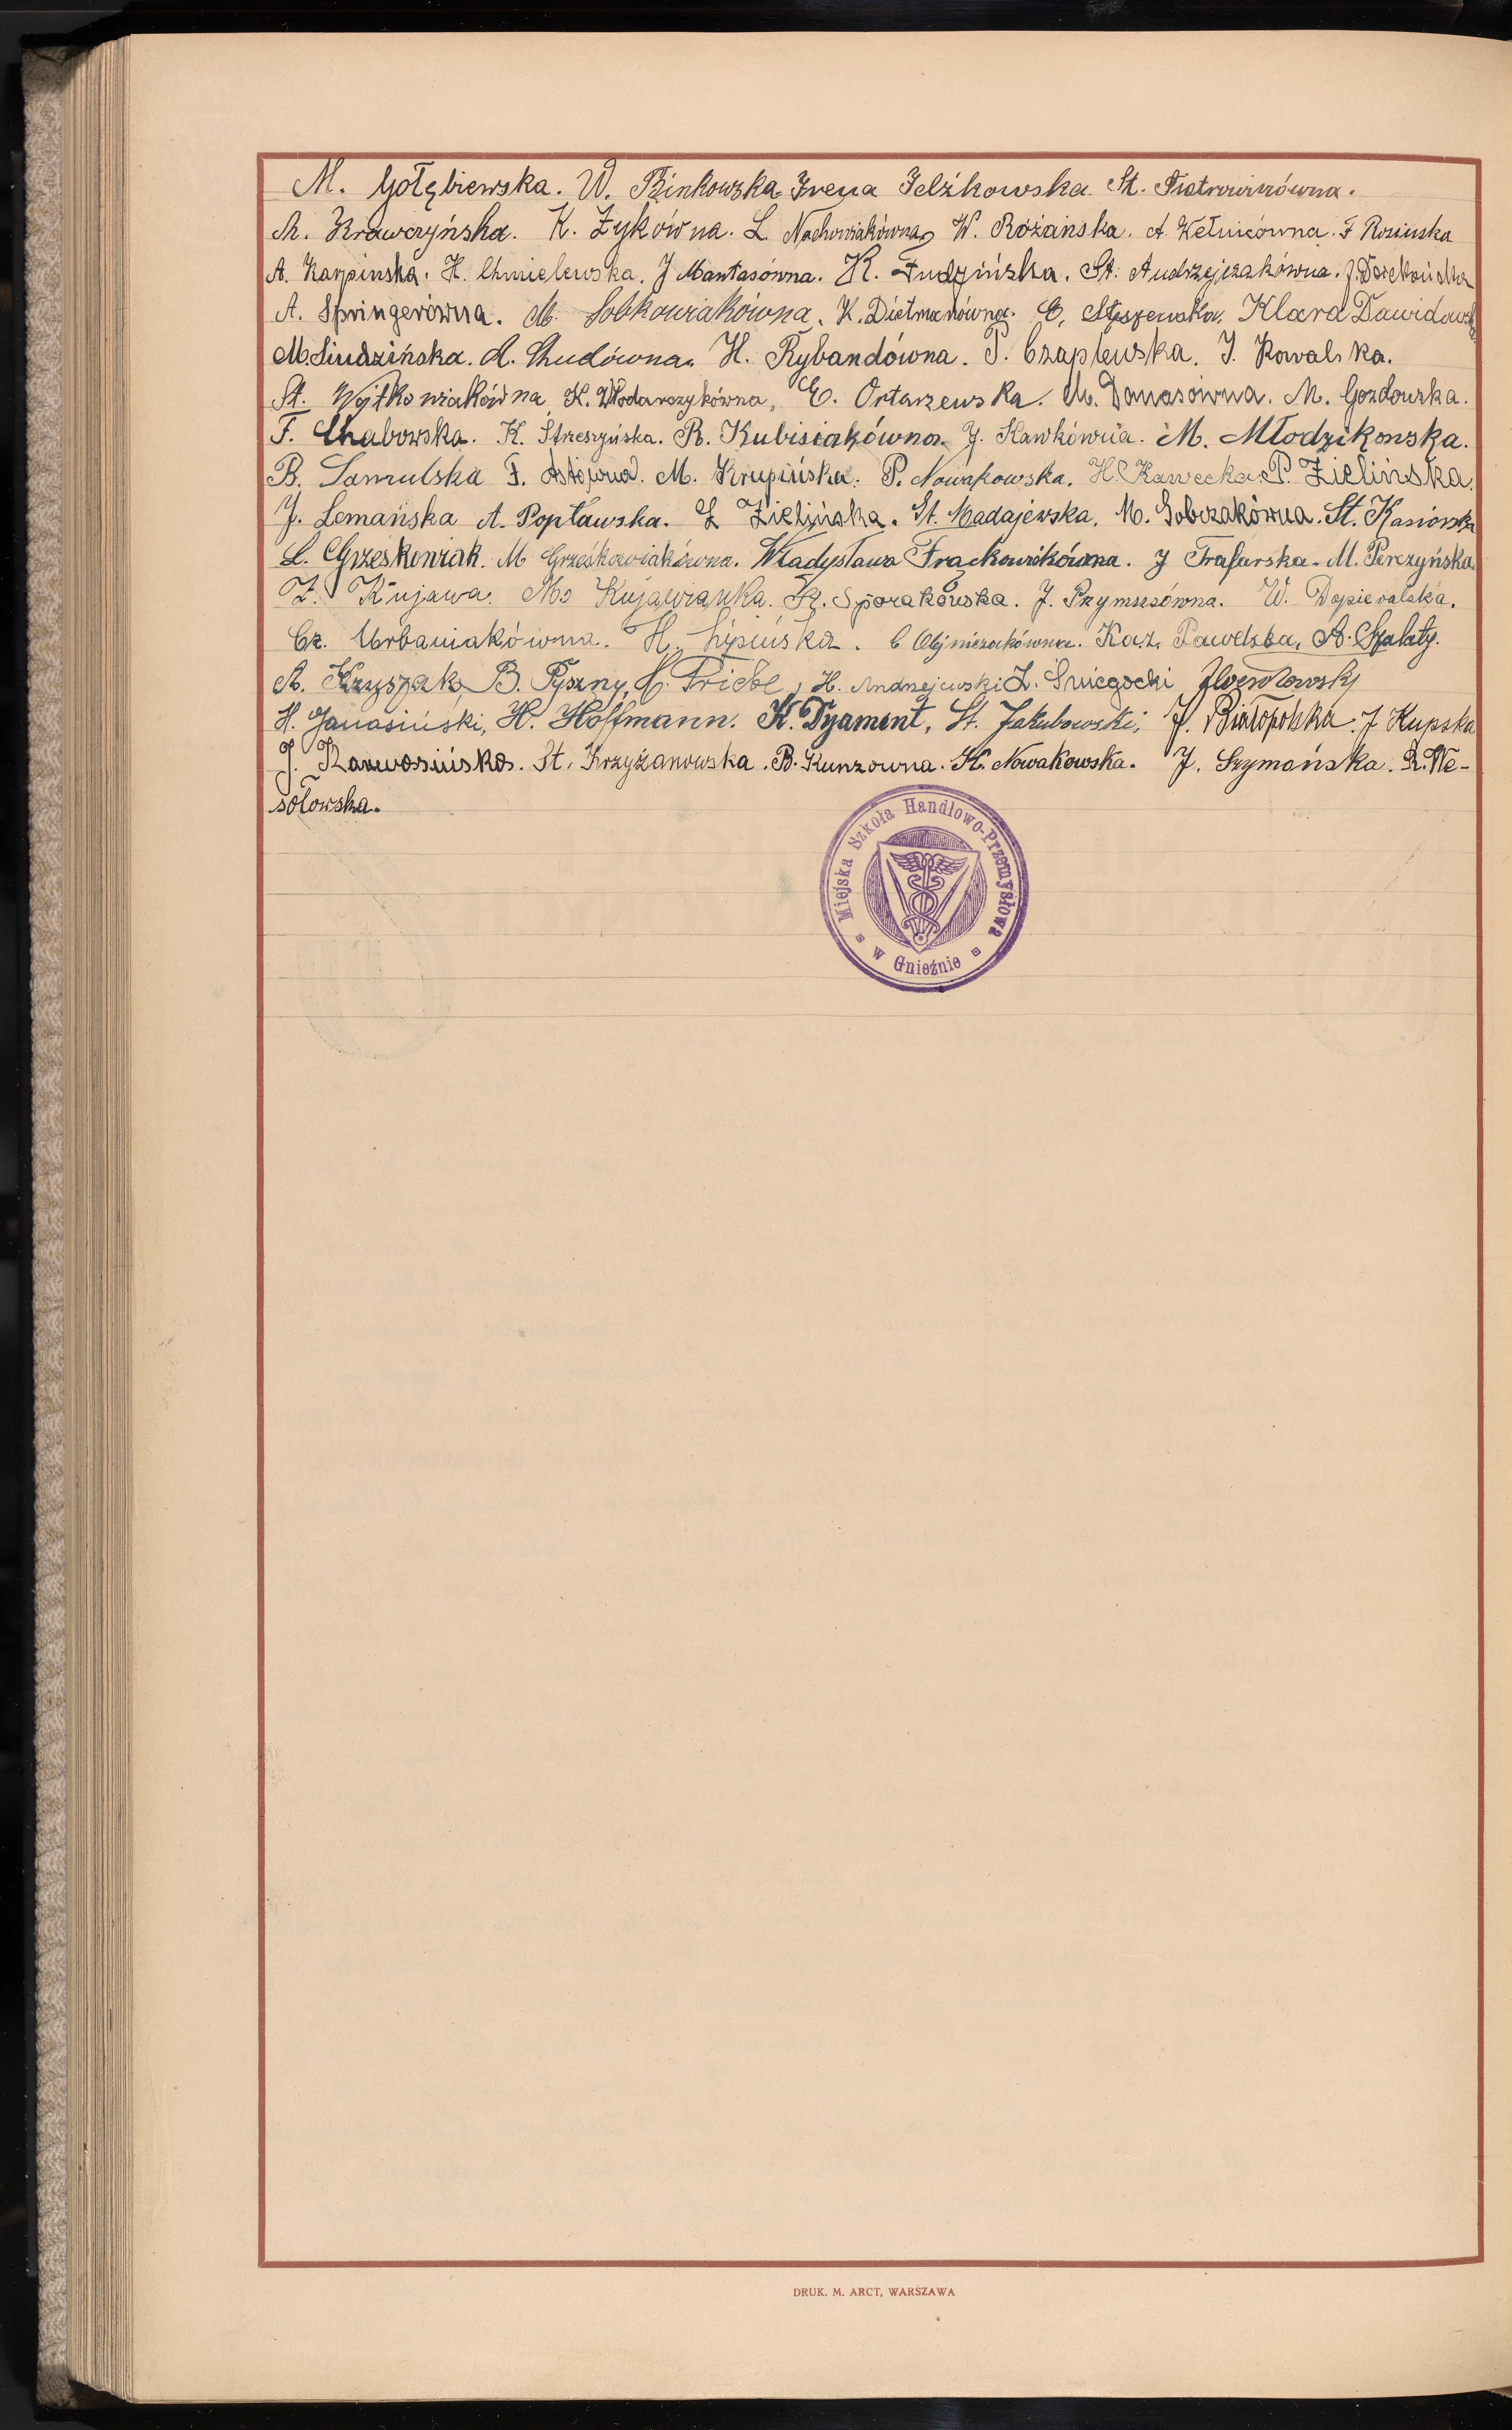 M. Gołębiewska. W. Binkowska Irena Jelźkowska St. Piotrowiczówna.
M. Krawczyńska. K. Zyków na. L. Nachowiakówna, W. Różańska. A. Kełnicówna. F Rosinska
A. Karpinska. H. Chmielewska. J Mantasówna. K. Fudzińska. St. Andrzejczakówna. J.
A. Springerówna. M. Sobkowiakówna, K. Dietmanówna. C. Stęszewska, Klara Dawidowska
M. Siudzińska. A. Chudówna. H. Rybandówna. P. Czaplewska. J. Kowalska.
St. Wojtkowiakówna K. Włodarczykówna, E. Ortarzewska. M. Danasówna. M. Gozdowska.
F. Chabowska. K. Strzeszyńska. R. Kubisiakówna. J. Kawkówna. M. Młodzikowska.
B. Samulska F. M. Krupińska. P. Nowakowska. H. Kawecka. P. Zielińska.
J. Lemańska A. Popławska. L Zielińska. St. Madajewska, M. Sobczakówna. St. Kasiorska
L. Grzeskowiak. M Grześkowiakówna. Władysława Frąckowiakówna. J Trafarska. M. Perczyńska
Z. Kujawa. M. Kujawianka. K. Sporakowska. J. Przymusówna. W. Dopieralska.
Cz. Urbaniakówna. H. Lipińska. C Olejniczakówna. Kaz. Pawelska, A. Szalaty.
A. Krzyszak, B. Pyszny, H. Priebe, H. Andrzejewski L. Śniegocki
H. Janasiński, H. Hoffmann. K. Dyament, St. Jakubowski, J. Białopolska. J Kupska
J. Karwosińska. St. Krzyżanowska. B. Kunzówna. K. Nowakowska. J. Szymańska. R. We-
sołowska.
Miejska Szkoła Handlowo-Przemysłowa
w Gnieźnie
DRUK. M. ARCT, WARSZAWA